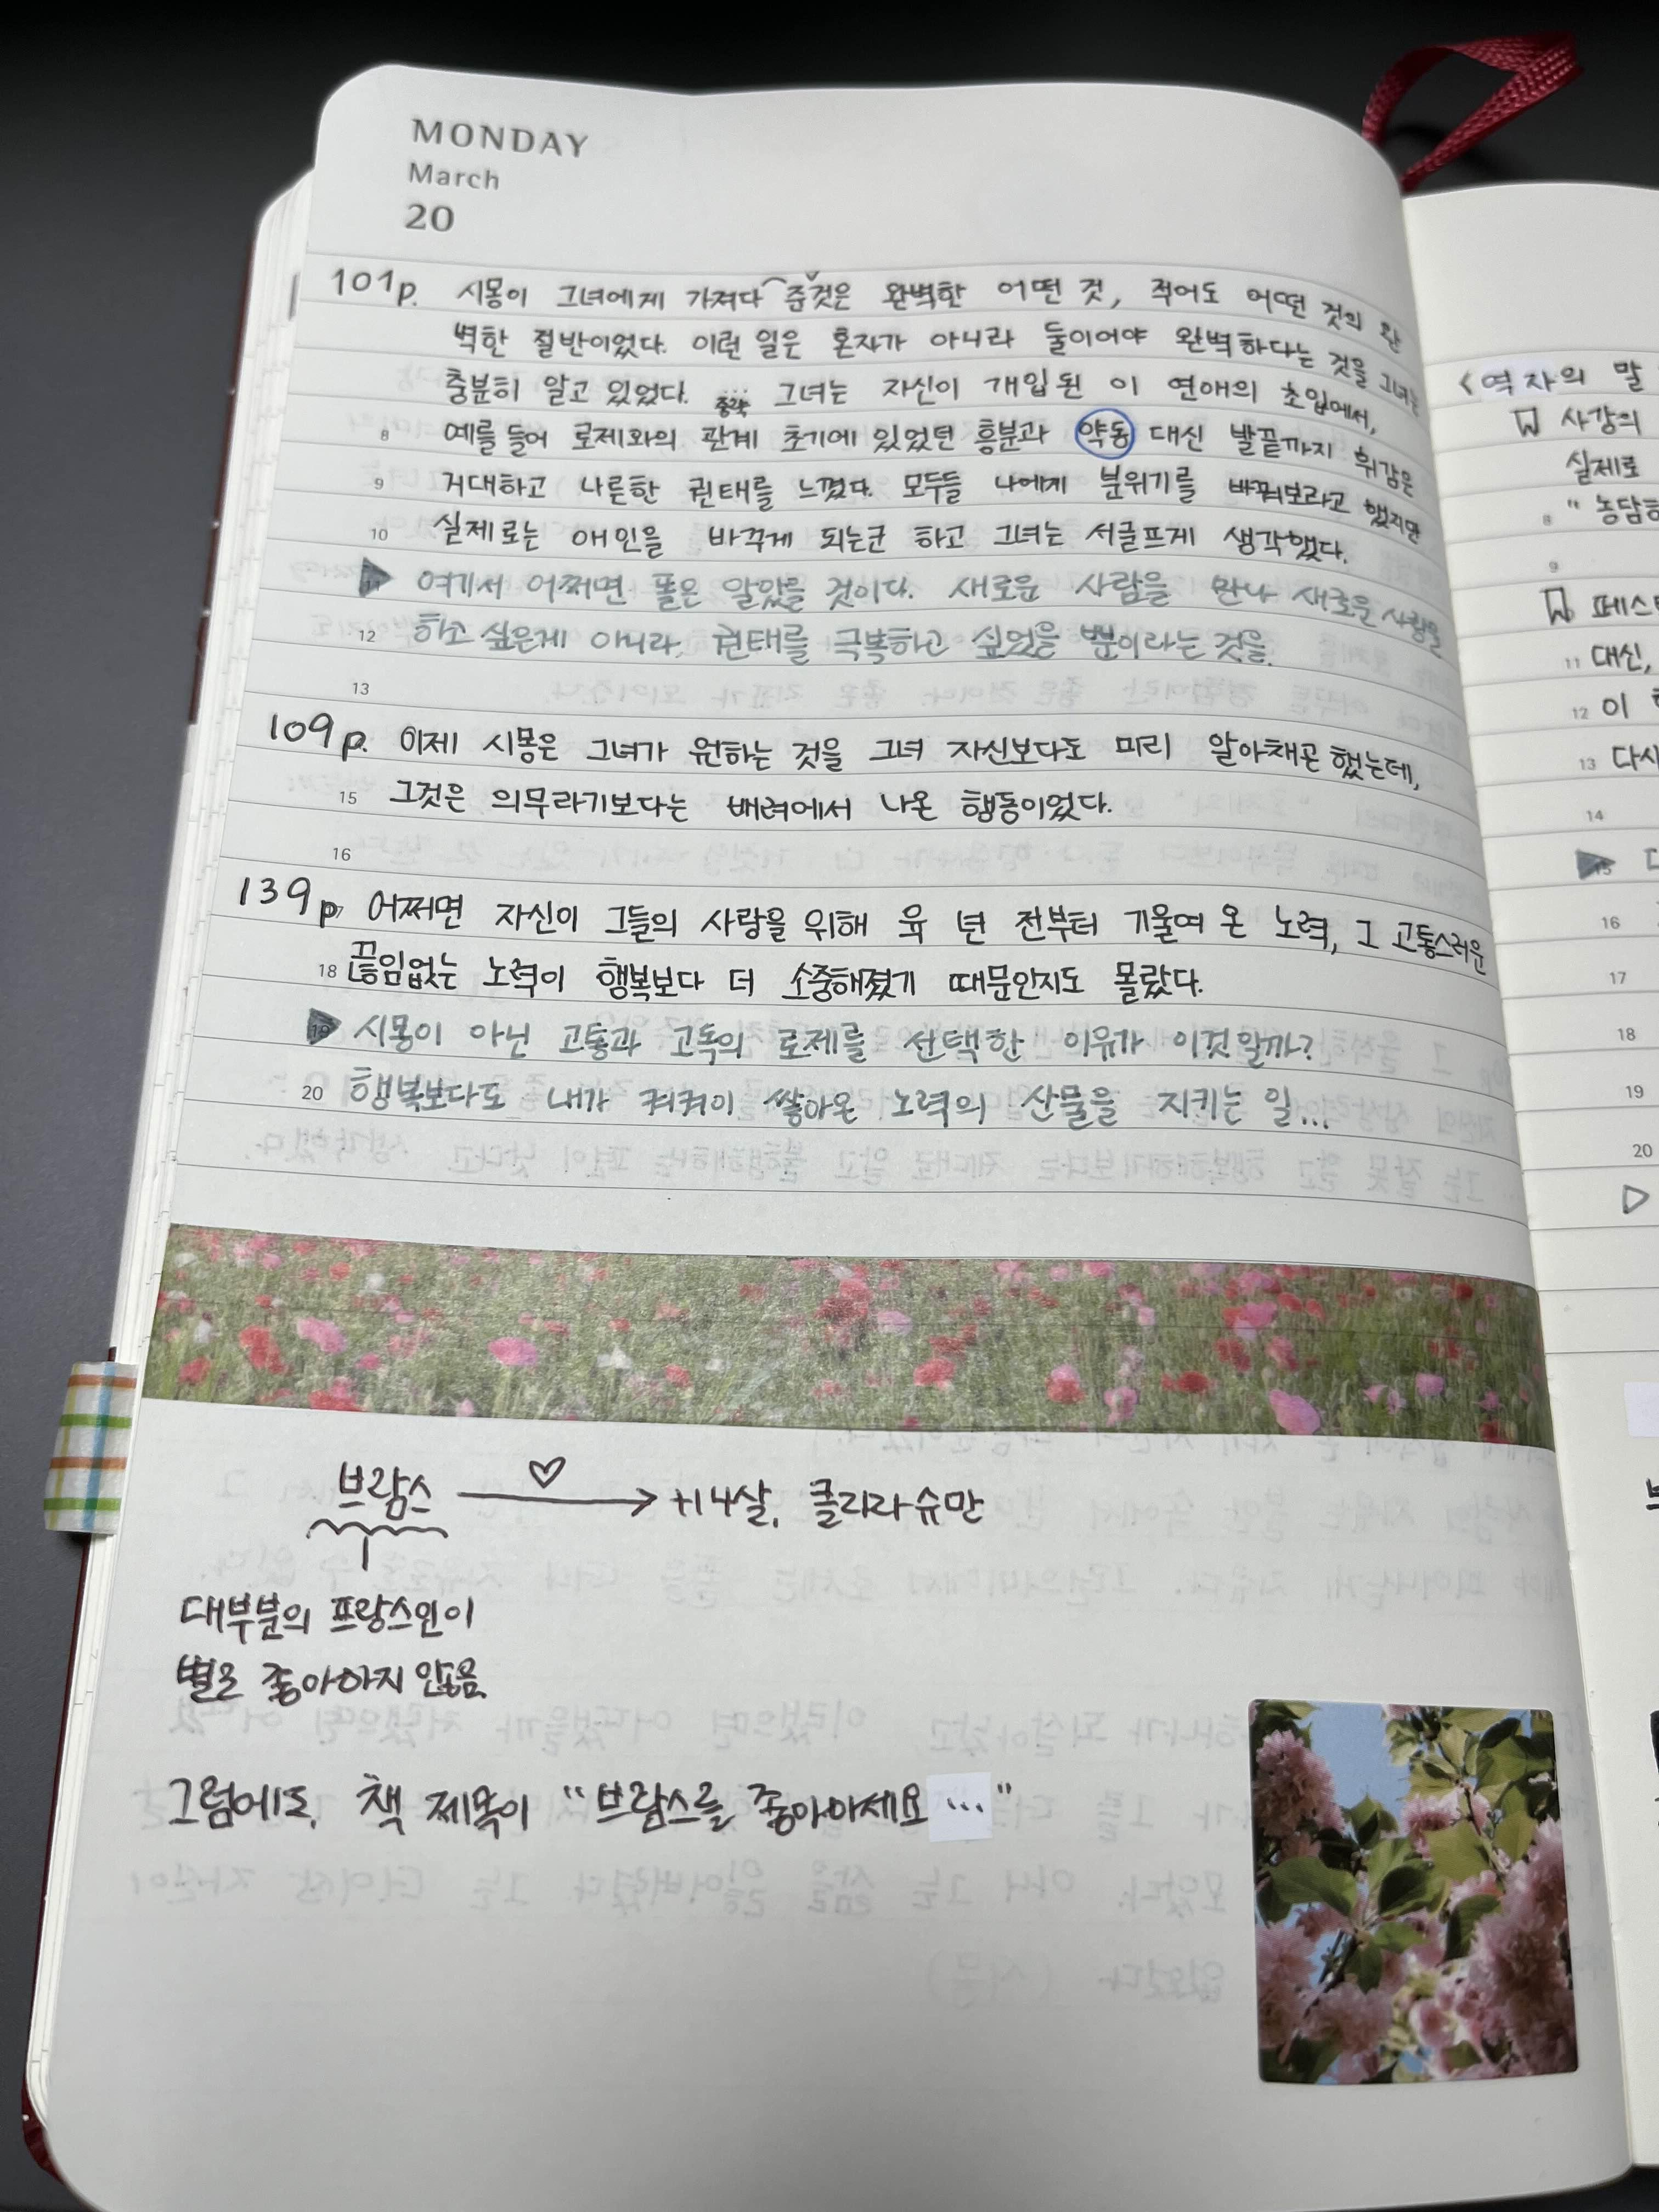 MONDAY
March
20
101p. 시몽이 그녀에게 가져다 준것은 완벽한 어떤 것, 적어도 어떤 것의 완
벽한 절반이었다. 이런 일은 혼자가 아니라 둘이어야 완벽하다는 것을 그녀는
충분히 알고 있었다. ... 그녀는 자신이 개입된 이 연애의 초입에서,
8 예를 들어 로제와의 관계 초기에 있었던 흥분과 약동 대신 발끝까지 휘감은
9 거대하고 나른한 권태를 느꼈다. 모두들 나에게 분위기를 바꿔보라고 했지만
10 실제로는 애인을 바꾸게 되는군 하고 그녀는 서글프게 생각했다.
11 여기서 어쩌면 폴은 알았을 것이다. 새로운 사람을 만나 새로운 사랑을
12 하고 싶은게 아니라, 권태를 극복하고 싶었을 뿐이라는 것을.
13
109p. 이제 시몽은 그녀가 원하는 것을 그녀 자신보다도 미리 알아채곤 했는데,
15 그것은 의무라기보다는 배려에서 나온 행동이었다.
16
139p 어쩌면 자신이 그들의 사랑을 위해 육 년 전부터 기울여 온 노력, 그 고통스러운
18 끊임없는 노력이 행복보다 더 소중해졌기 때문인지도 몰랐다.
19 시몽이 아닌 고통과 고독의 로제를 선택한 이유가 이것일까?
20 행복보다도 내가 켜켜이 쌓아온 노력의 산물을 지키는 일...
브람스 → +14살, 클라라 슈만
대부분의 프랑스인이
별로 좋아하지 않음
그럼에도, 책 제목이 "브람스를 좋아하세요..."
<여자의 말
사강의
실제로
8 " 농담하
9
페스트
11 대신,
12 이
13 다시
14
15
16
17
18
19
20